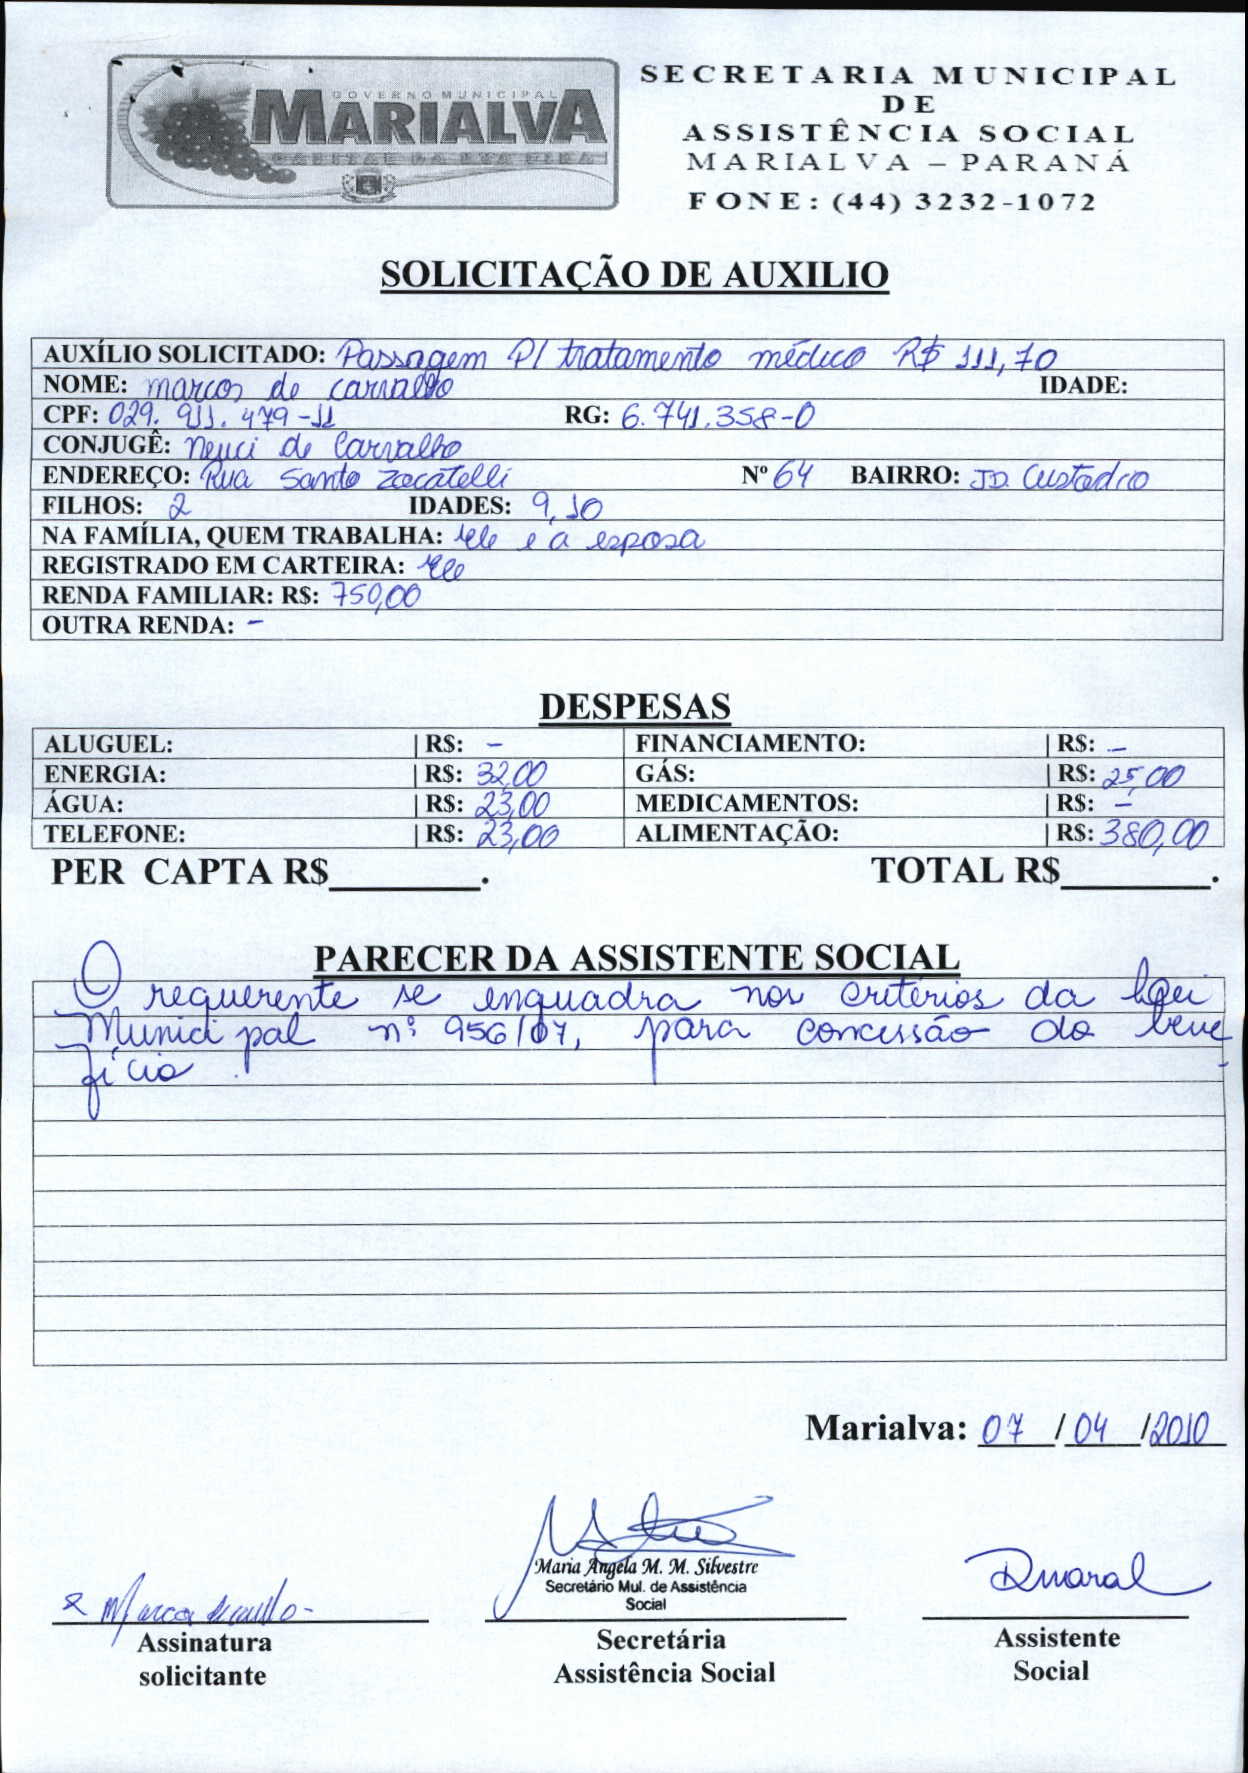 GOVERNO MUNICIPAL
MARIALVA
CAPITAL DA UVA FINA
SECRETARIA MUNICIPAL
DE
ASSISTÊNCIA SOCIAL
MARIALVA – PARANÁ
FONE: (44) 3232-1072
SOLICITAÇÃO DE AUXILIO
AUXÍLIO SOLICITADO: Passagem P/ tratamento médico R$ 111,70
NOME: marcos de carvalho IDADE:
CPF: 029. 911. 479-11 RG: 6.741.358-0
CONJUGÊ: Neuci de Carvalho
ENDEREÇO: Rua Santo Zacatelli Nº 64 BAIRRO: JD. Custodio
FILHOS: 2 IDADES: 9, 10
NA FAMÍLIA, QUEM TRABALHA: Ele e a esposa
REGISTRADO EM CARTEIRA: Ele
RENDA FAMILIAR: R$: 750,00
OUTRA RENDA: –
DESPESAS
ALUGUEL: | R$: – FINANCIAMENTO: | R$: –
ENERGIA: | R$: 32,00 GÁS: | R$: 25,00
ÁGUA: | R$: 23,00 MEDICAMENTOS: | R$: –
TELEFONE: | R$: 23,00 ALIMENTAÇÃO: | R$: 380,00
PER CAPTA R$________. TOTAL R$________.
PARECER DA ASSISTENTE SOCIAL
O requerente se enquadra nos critérios da Lei
Municipal nº 956/07, para concessão do bene
fício.
Marialva: 07 / 04 / 2010
Maria Angela M. M. Silvestre
Secretário Mul. de Assistência
Social
Marcos de carvalho
Amaral
Assinatura
solicitante
Secretária
Assistência Social
Assistente
Social